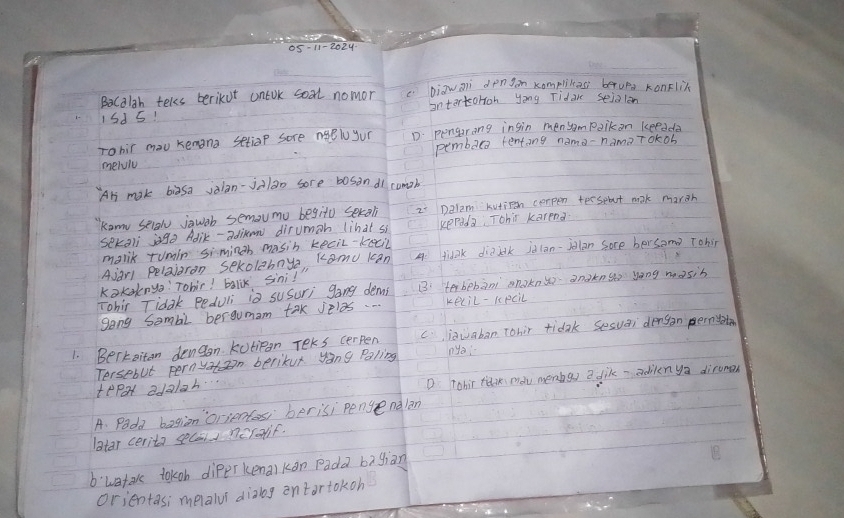 05-11-2024
Bacalah teks berikut untuk soal nomor
1 sd 5!
Tobir mau kemana setiap sore ngeluyur
melulu
"Ah mak biasa jalan-jalan sore bosan di rumah
"Kamu selalu jawab semaumu begitu sekali
sekali jaga Adik-adikmu dirumah lihat si
malik Tumin si minah masih kecil-kecil
Ajari Pelajaran sekolahnya, kamu kan
kakaknya! Tohir! balik, sini!
Tohir Tidak Peduli ia susuri gang demi
gang Sambil bergumam tak jelas ...
1. Berkaitan dengan kutipan Teks cerpen
Tersebut Pernyataan berikut yang Paling
tepat adalah ...
A. Pada bagian Orientasi berisi Pengenalan
latar cerita secara naratif.
b. Watak tokoh diperkenalkan Pada bagian
Orientasi melalui dialog antartokoh
C. Diawali dengan komplikasi berupa konflik
antartokoh yang Tidak sejalan
D. Pengarang ingin menyampaikan kepada
pembaca tentang nama-nama Tokoh
2. Dalam kutipan cerpen tersebut mak marah
kepada Tohir karena
A tidak diajak jalan-jalan sore bersama Tohir
B. terbebani anaknya-anaknya yang masih
kecil-kecil
C. jawaban Tohir tidak sesuai dengan pernyataan
nya.
D. Tohir tidak mau menjaga adik-adiknya dirumah